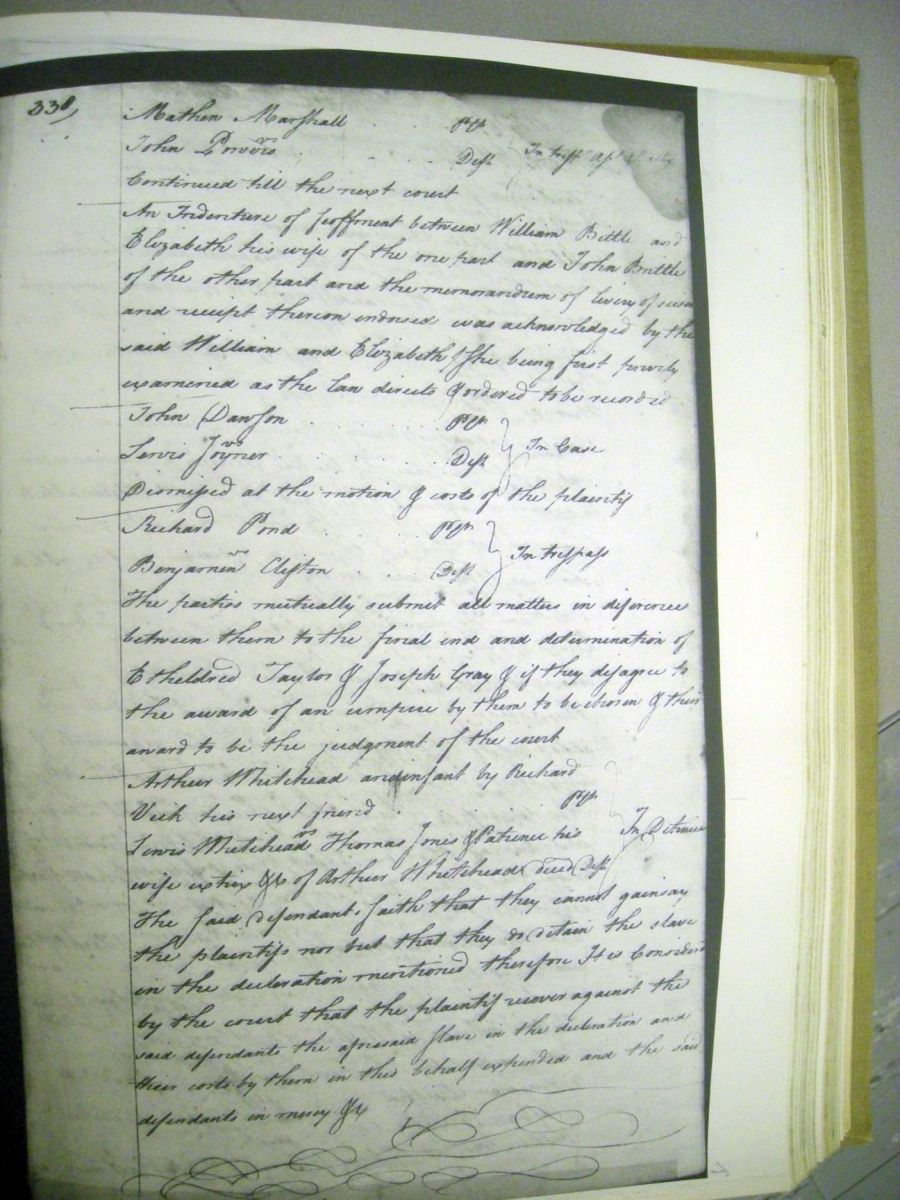 338,
Mathew Marshall . . . . Plt
vs
John Powers . . . . Deft } In tresp
Continued till the next court
An Indenture of feoffment between William Bittle and
Elizabeth his wife of the one part and John Brittle
of the other part and the memorandum of livery of seisin
and receipt thereon endorsed was acknowledged by the
said William and Elizabeth (she being first privily
examened as the law directs & ordered to be recorded
John Dawson . . . . Plt
vs } In Case
Lewis Joyner . . . . Deft
Dismissed at the motion & costs of the plaintif
Richard Pond . . . . Plt
vs } In trespass
Benjamin Clifton . . . Deft
The parties mutually submit all matters in diference
between them to the final end and determination of
Etheldred Taylor & Joseph Gray & if they disagree to
the award of an umpire by them to be chosen & their
award to be the judgment of the court
Arthur Whitehead an infant by Richard
Vick his next friend . . . Plt
vs
Lewis Whitehead Thomas Jones & Patience his } In Detinue
wife extrix &c of Arthur Whitehead decd Deft
The said defendants saith that they cannot gainsay
the plaintifs nor but that they do detain the slave
in the declaration mentioned therefore It is Considerd
by the court that the plaintif recover against the
said defendants the aforesaid slave in the declaration and
their costs by them in this behalf expended and the said
defendants in mercy &c